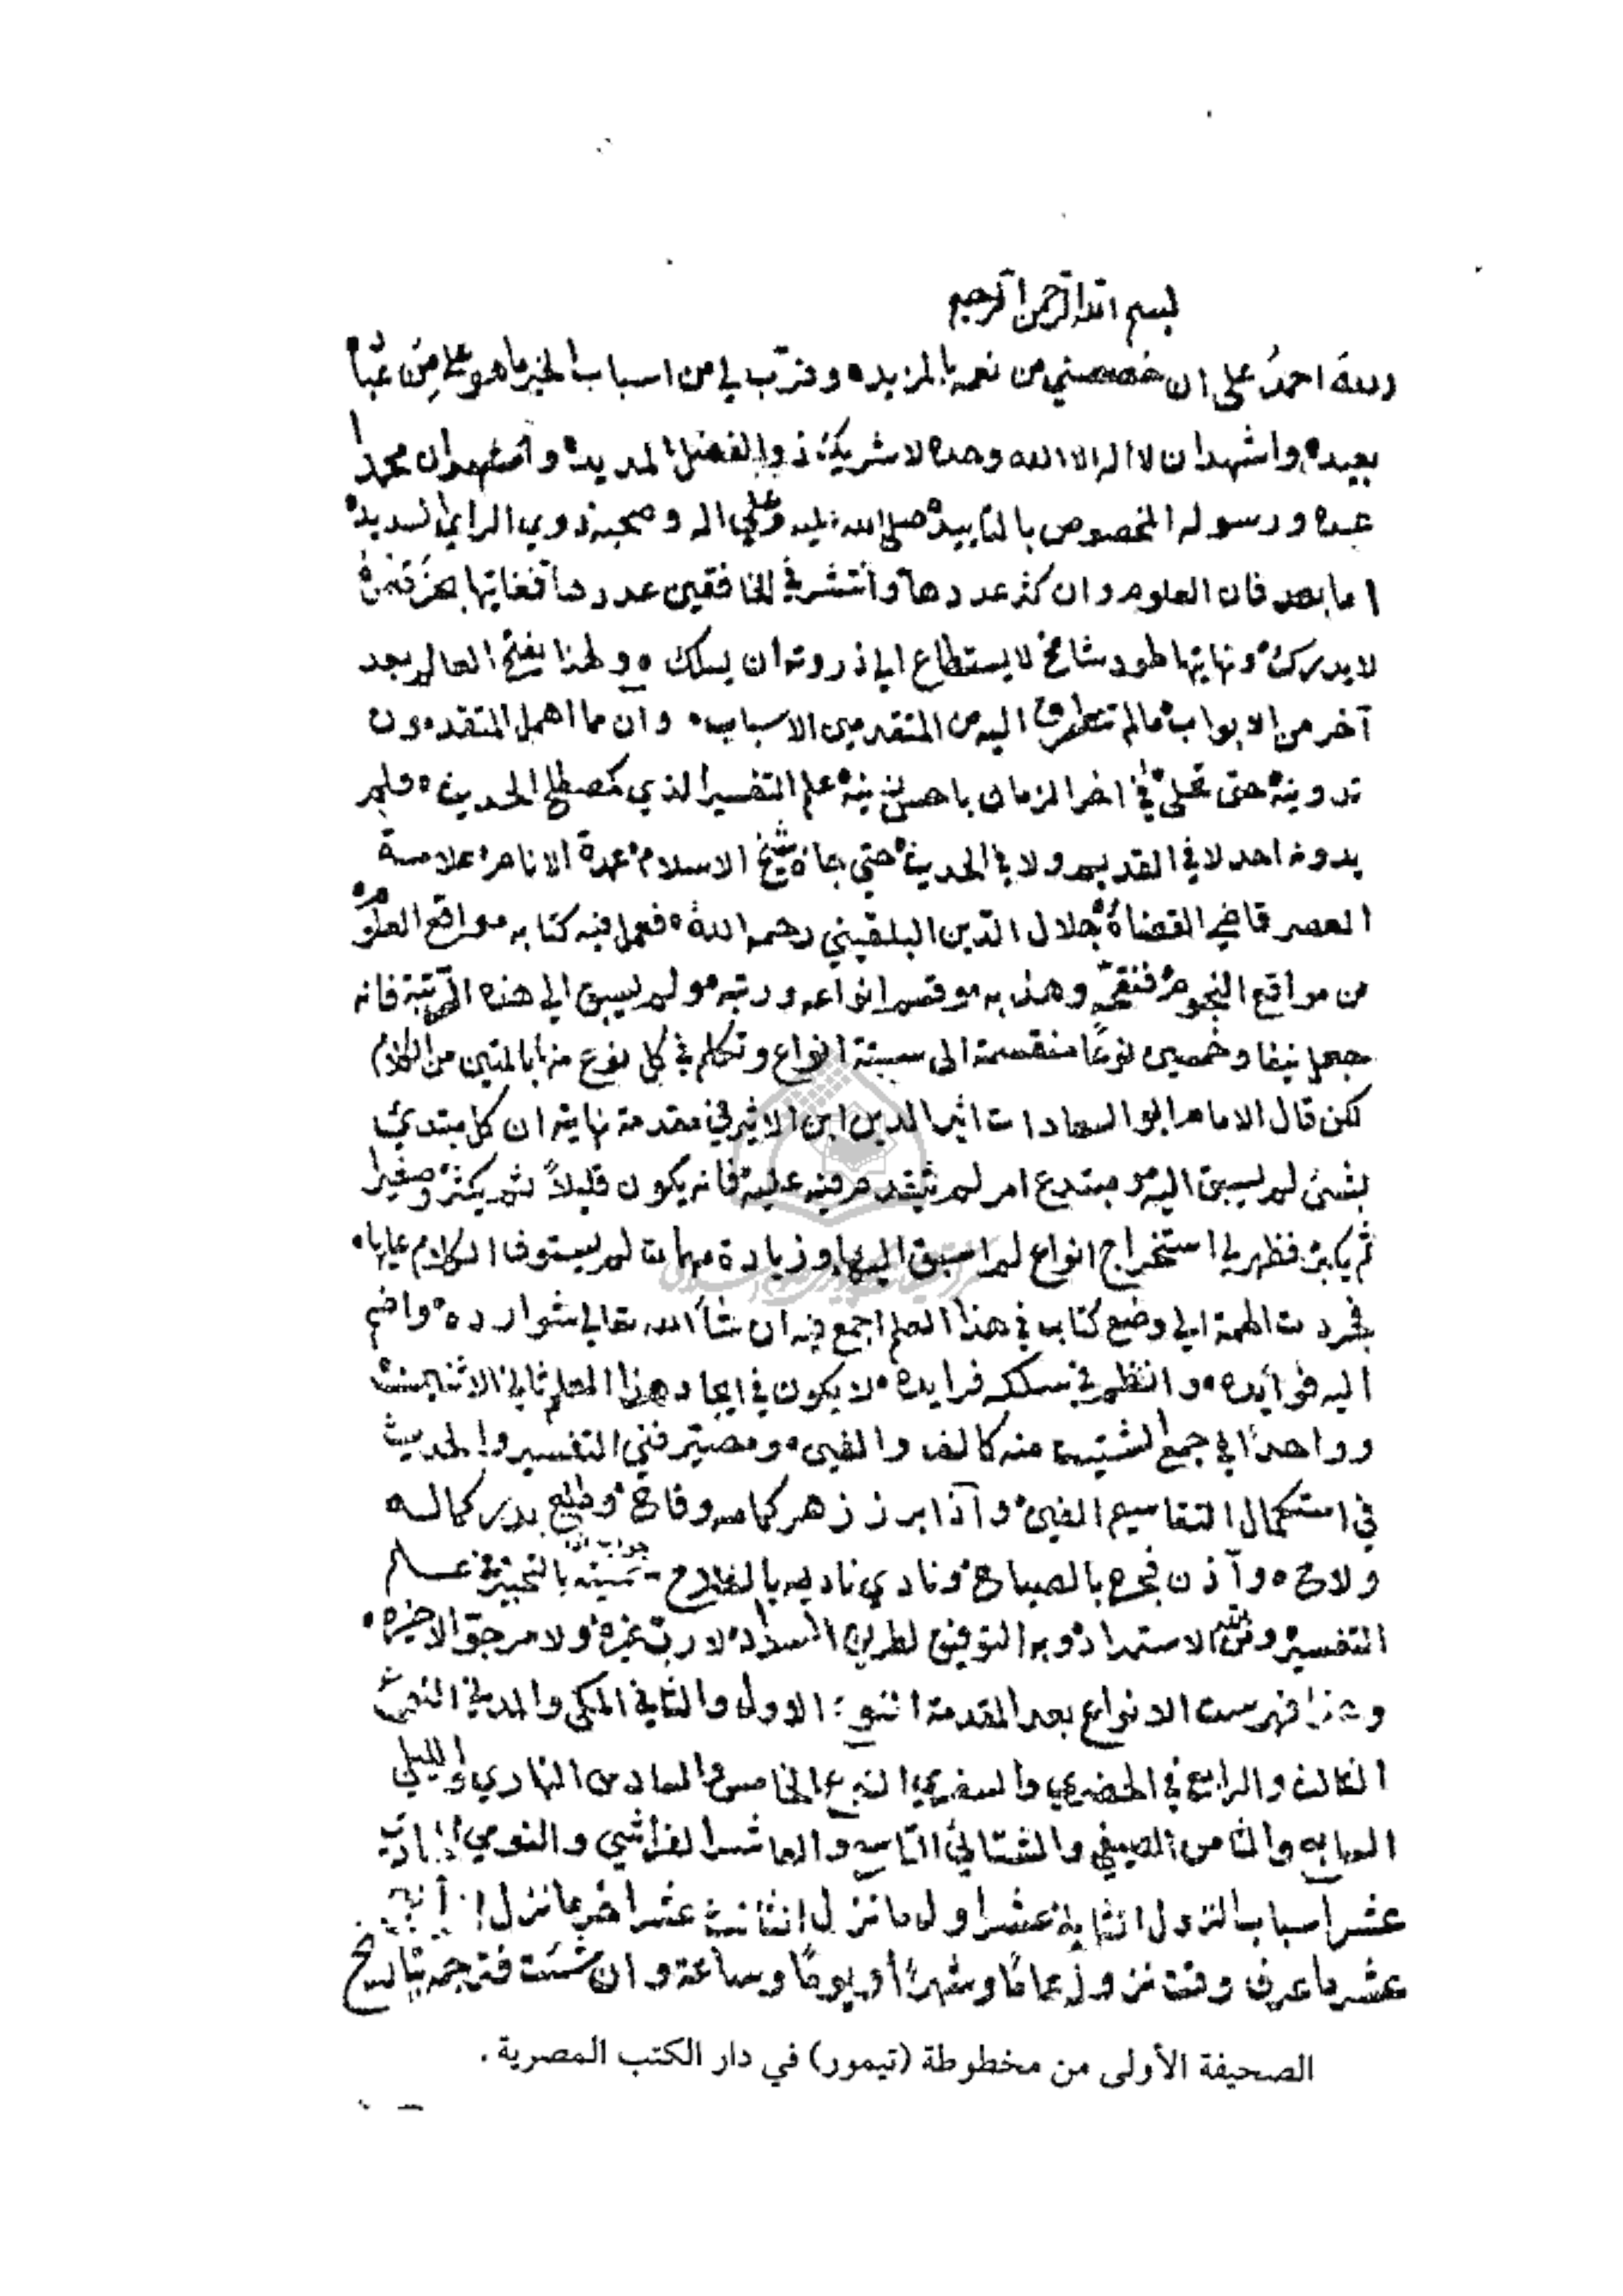 بسم الله الرحمن الرحيم
الله احمدُ على ان خصصني من نعمه بالمزيد، وقرّب لي من اسباب الخير ما هو على من
بعيد، واشهد ان لا اله الا الله وحده لا شريك له ذو الفضل المديد، واشهد ان محمدا
عبده ورسوله المخصوص بالتاييد صلى الله عليه وعلى اله وصحبه ذوي الراي السديد،
اما بعد فان العلوم وان كثر عددها وانتشر في الخافقين مددها فغايتها بحر قعره
لا يدرك، ونهايتها طود شامخ لا يستطاع الى ذروته ان يسلك، ولهذا يفتح لعالم بعد
آخر من الابواب، ما لم تتطرق اليه من المتقدمين الاسباب، وان مما اهمل المتقدمون
تدوينه، حتى تحلى في اخر الزمان باحسن زينة، علم التفسير الذي كمصطلح الحديث، فلم
يدونه احد لا في القديم ولا في الحديث، حتى جاء شيخ الاسلام، عمدة الانام، علامة
العصر قاضي القضاة، جلال الدين البلقيني رحمه الله، فعمل فيه كتابه مواقع العلوم،
من مواقع النجوم، فنقحه وهذبه، وقسم انواعه ورتبه، ولم يسبق الى هذه المرتبة فانه
جعله نيفا وخمسين نوعًا منقسمة الى ستة انواع وتكلم في كل نوع منها بالمتين من الكلام
لكن قال الامام ابو السعادات اثير الدين ابن الاثير في مقدمة نهايته ان كل مبتدئ
بشئ لم يسبق اليه، ومبتدع امر لم يتقدم فيه عليه، فانه يكون قليلاً ثم يكثر، وصغيرا
ثم يكبر، فظهر لي استخراج انواع لم اسبق اليها، وزيادة مهمات لم يستوف الكلام عليها،
فجردت الهمة الى وضع كتاب في هذا العلم اجمع فيه ان شاء الله تعالى شوارده، واضم
اليه فوائده، وانظم في سلكه فرايده، لاكون في ايجاد هذا العلم ثاني الاثنين،
وواحدًا في جمع الشتيت منه كالف والفين، ومصير فني التفسير والحديث
في استكمال التقاسيم الفين، واذا برز زهر كمامه وفاح، وطلع بدر كماله
ولاح، واذن فجره بالصباح، ونادى ناديه بالفلاح، سميته بالتحبير في علم
التفسير، ومن الله الاستمداد، وبه التوفيق لطريق السداد، لا رب غيره، ولا مرجو الا خيره،
وهذا فهرست الانواع بعد المقدمة النوع الاول والثاني المكي والمدني النوع
الثالث والرابع في الحضري والسفري النوع الخامس والسادس النهاري والليلي
السابع والثامن الصيفي والشتائي التاسع والعاشر الفراشي والنومي الحادي
عشر اسباب النزول الثاني عشر اول ما نزل الثالث عشر اخر ما نزل الرابع
عشر ما عرف وقت نزوله عامًا وشهرًا ويومًا وساعة وان شئت فترجمه بتاريخ
الصحيفة الأولى من مخطوطة (تيمور) في دار الكتب المصرية.